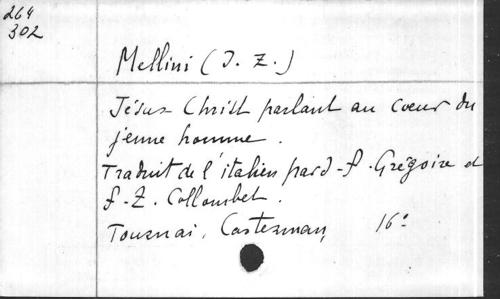 264
302
Mellini (J. Z.)
Jésus Christ parlant au coeur du
jeune homme.
Traduit de l'italien par J-F. Grégoire et
F-Z. Collombet.
Tournai, Casterman, 16°